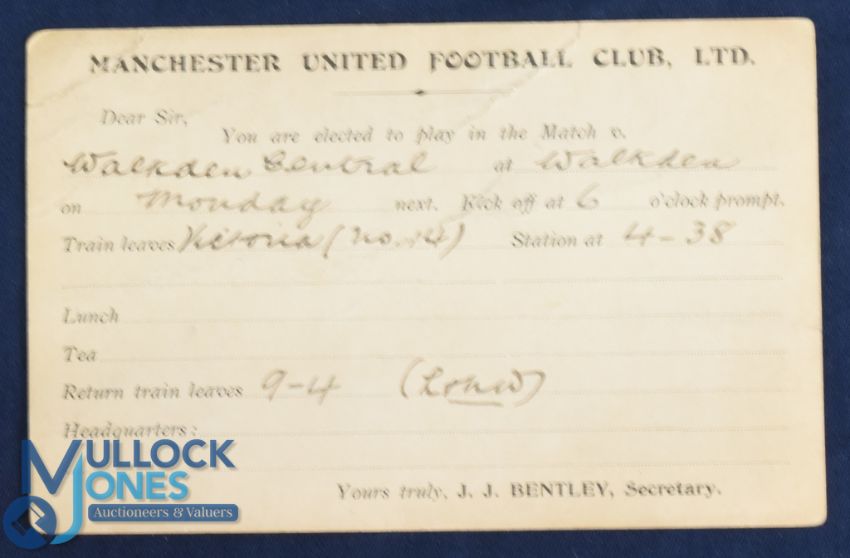 MANCHESTER UNITED FOOTBALL CLUB, LTD.
Dear Sir,
You are elected to play in the Match v.
Walkden Central at Walkden
on Monday next. Kick off at 6 o'clock prompt.
Train leaves Victoria (No. 14) Station at 4-38
Lunch
Tea
Return train leaves 9-4
Headquarters:
Yours truly, J. J. BENTLEY, Secretary.
MULLOCK
JONES
Auctioneers & Valuers